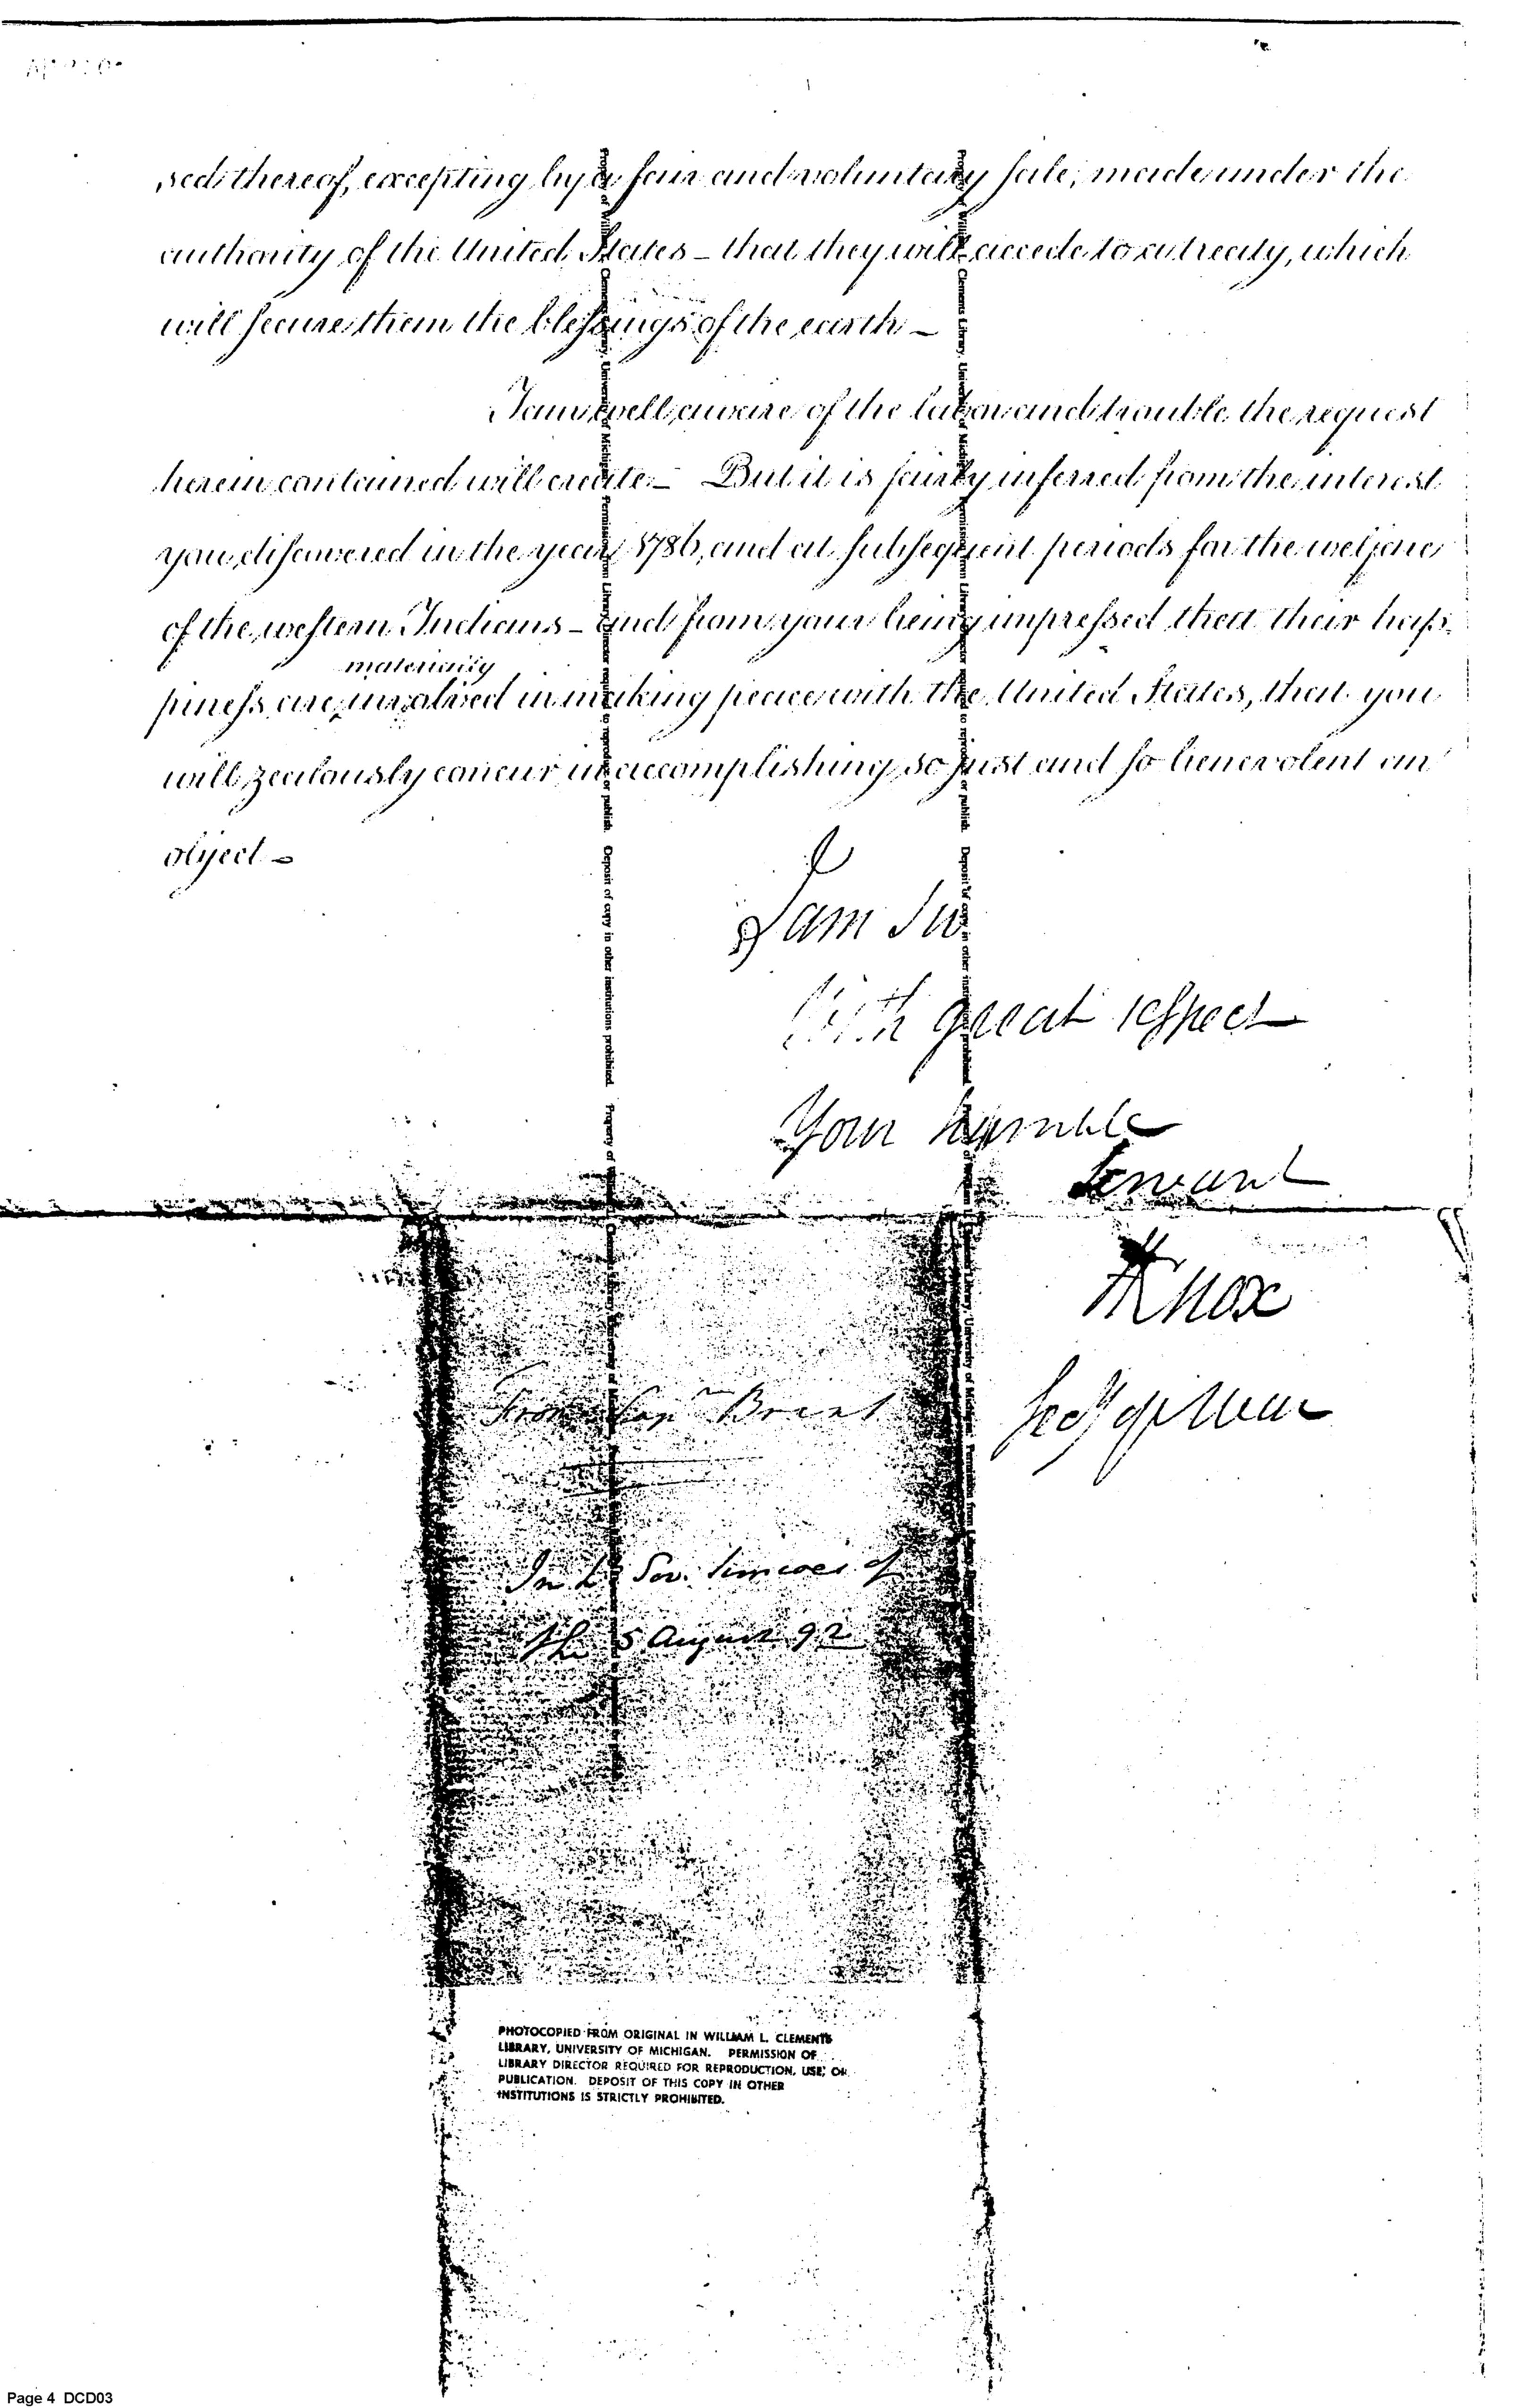 sed thereof, excepting by a fair and voluntary sale, made under the
authority of the United States – that they will accede to a treaty, which
will secure them the blessings of the earth –
I am well aware of the labor and trouble the request
herein contained will create – But it is fairly inferred from the interest
you discovered in the year 1786, and at subsequent periods for the welfare
of the western Indians – and from your being impressed that their hap-
materially
piness are involved in making peace with the United States, that you
will zealously concur in accomplishing so just and so benevolent an
object –
I am Sir
With great respect
Your humble
Servant
HKnox
Secy of War
From Capn Brant
In Lt Gov. Simcoes of
the 5 August 92
PHOTOCOPIED FROM ORIGINAL IN WILLIAM L. CLEMENTS
LIBRARY, UNIVERSITY OF MICHIGAN. PERMISSION OF
LIBRARY DIRECTOR REQUIRED FOR REPRODUCTION, USE, OR
PUBLICATION. DEPOSIT OF THIS COPY IN OTHER
INSTITUTIONS IS STRICTLY PROHIBITED.
Property of William L. Clements Library, University of Michigan. Permission from Library Director required to reproduce or publish. Deposit of copy in other institutions prohibited.
Property of William L. Clements Library, University of Michigan. Permission from Library Director required to reproduce or publish. Deposit of copy in other institutions prohibited.
Page 4 DCD03